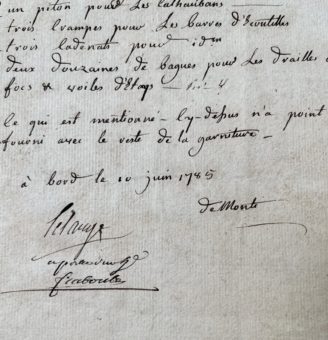 un piton pour Les Cathaubans
trois Crampes pour Les Barres d'Ecoutilles
trois Cadenats pour idm
deux douzaines de bagues pour Les drailles
focs & voiles d'Etay
le qui est mentioané Cy-dessus n'a point
fourni avec le reste de la garniture
à bord le 10 juin 1785
deMonti